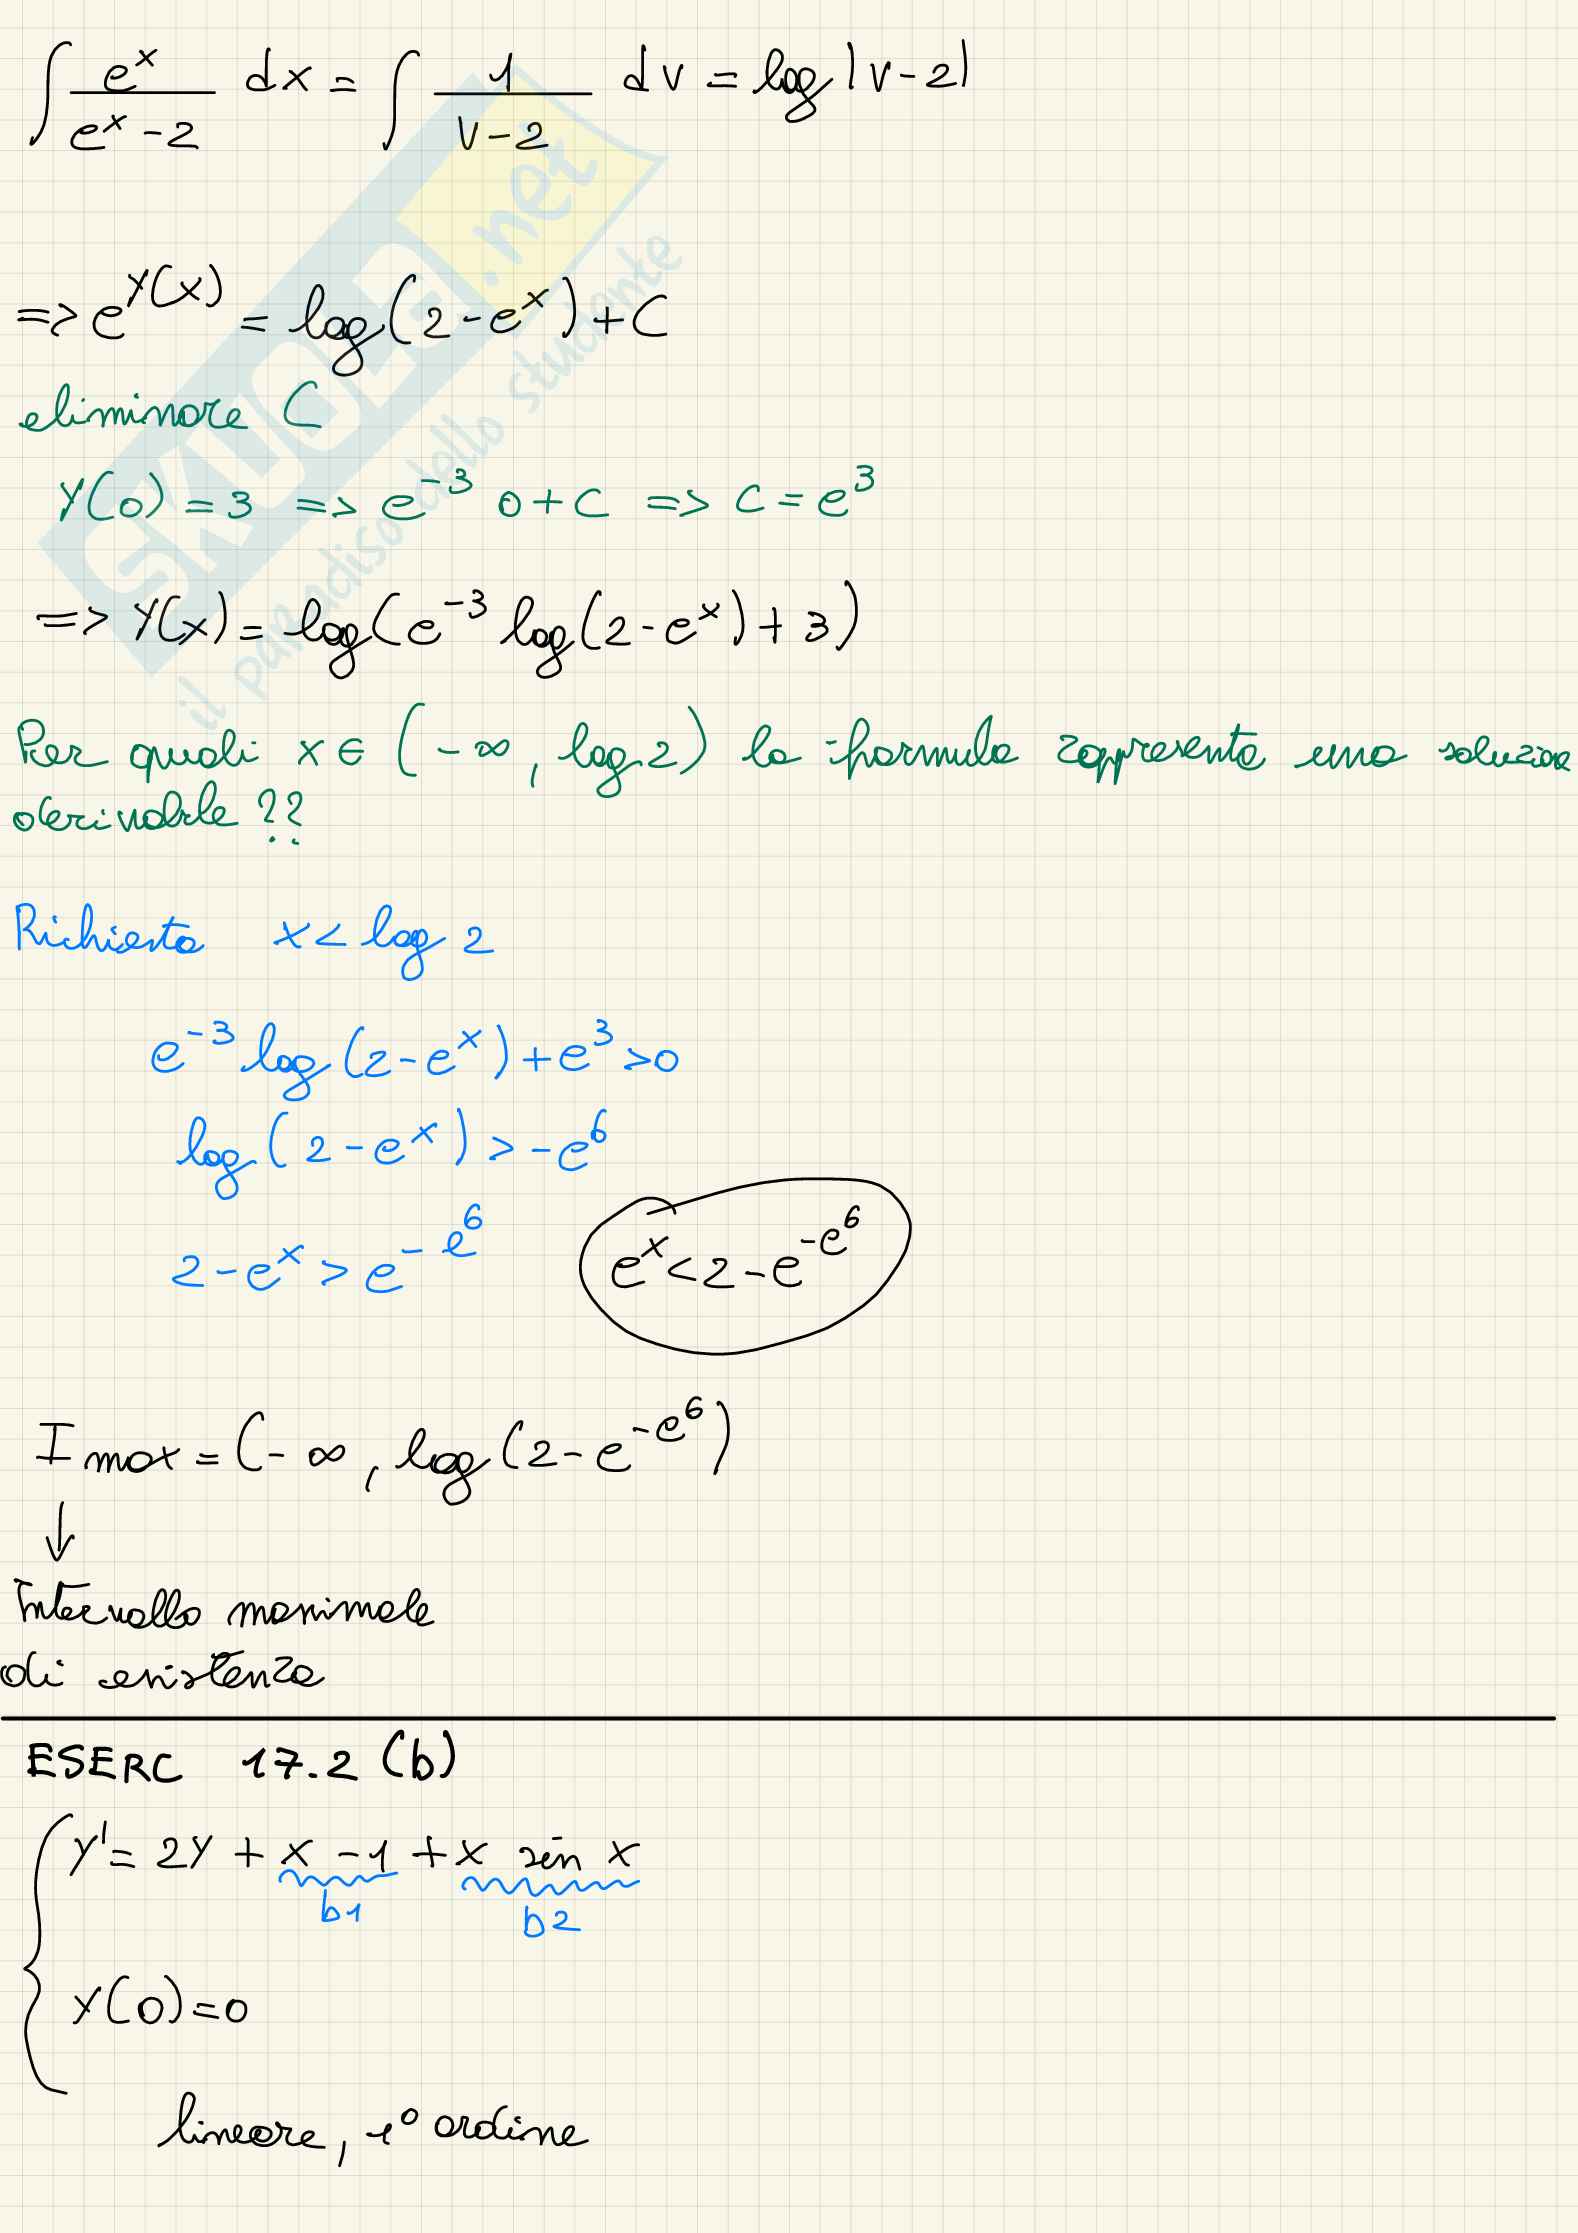 ∫ e^x / (e^x - 2) dx = ∫ 1 / (v - 2) dv = log |v - 2|
=> e^{y(x)} = log(2 - e^x) + C
eliminare C
y(0) = 3 => e^{-3} 0 + C => C = e^3
=> y(x) = log(e^{-3} log(2 - e^x) + 3)
Per quali x ∈ (-∞, log 2) la formula rappresenta una soluzione
derivabile ??
Richiesta x < log 2
e^{-3} log(2 - e^x) + e^3 > 0
log(2 - e^x) > -e^6
2 - e^x > e^{-e^6} e^x < 2 - e^{-e^6}
I max = (-∞, log(2 - e^{-e^6})
↓
Intervallo massimale
di esistenza
ESERC 17.2 (b)
y' = 2y + x - 1 + x sin x
b1 b2
y(0) = 0
lineare, 1° ordine
SKUOLA.net
il paradiso dello studente